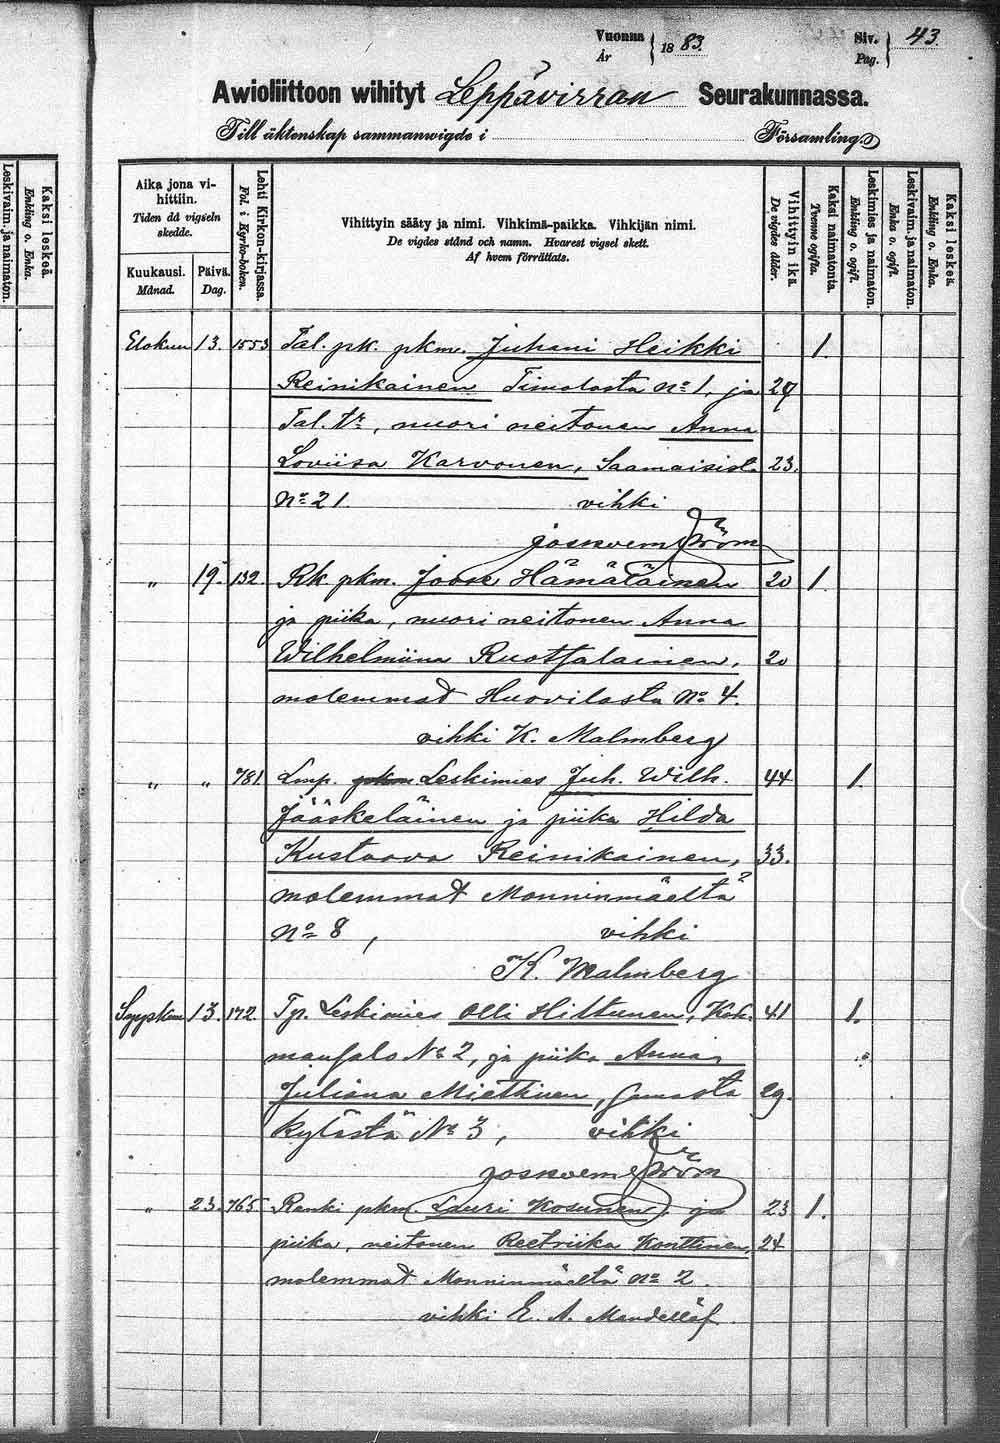 Vuonna
År
18 83.
Siv.
Pag.
43.
Awioliittoon wihityt Leppävirran Seurakunnassa.
Till äktenskap sammanwigde i Församling.
Leskivaim. ja naimaton.
Enkling o. Enka.
Kaksi leskeä.
Aika jona vi-
hittiin.
Tiden då vigseln
skedde.
Kuukausi.
Månad.
Päivä.
Dag.
Lehti Kirkon-kirjassa.
Fol. i Kyrko-boken.
Vihittyin sääty ja nimi. Vihkimä-paikka. Vihkijän nimi.
De vigdes stånd och namn. Hvarest vigsel skett.
Af hvem förrättats.
Vihittyin ikä
De vigdes ålder.
Kaksi naimatonta.
Tvenne ogifta.
Leskimies ja naimaton.
Enkling o. ogift.
Leskivaim. ja naimaton.
Enka o. ogift.
Kaksi leskeä
Enkling o. Enka.
Elokuu 13. 1553 Tal. pk. pkm. Juhani Heikki 1.
Reinikainen Timolasta No 1, ja 27
Tal. tr, nuori neitonen Anna
Loviisa Karvonen, Saamaisist. 23.
No 21. vihki
" 19. 132 Rk pkm. Joose Hämäläinen 20 1.
ja piika, nuori neitonen Anna
Wilhelmiina Ruotsalainen, 20
molemmat Huovilasta No 4.
vihki K. Malmberg
" " 781. Lmp. pkm. Leskimies Juh. Wilh. 44 1.
Jääskeläinen ja piika Hilda
Kustaava Reinikainen, 33.
molemmat Monninmäeltä
No 8, vihki
K. Malmberg
Syyskuu 13. 172. Tp. Leskimies Olli Hiltunen, Kot- 41 1.
No 2, ja piika Anna
Juliana Miettinen, 29.
kylästä No 3, vihki
" 23. 765. Renki pkm. Lauri Kosunen, ja 23 1.
piika, neitonen Reetriika Konttinen, 24
molemmat Monninmäeltä No 2.
vihki E. A. Mandellöf